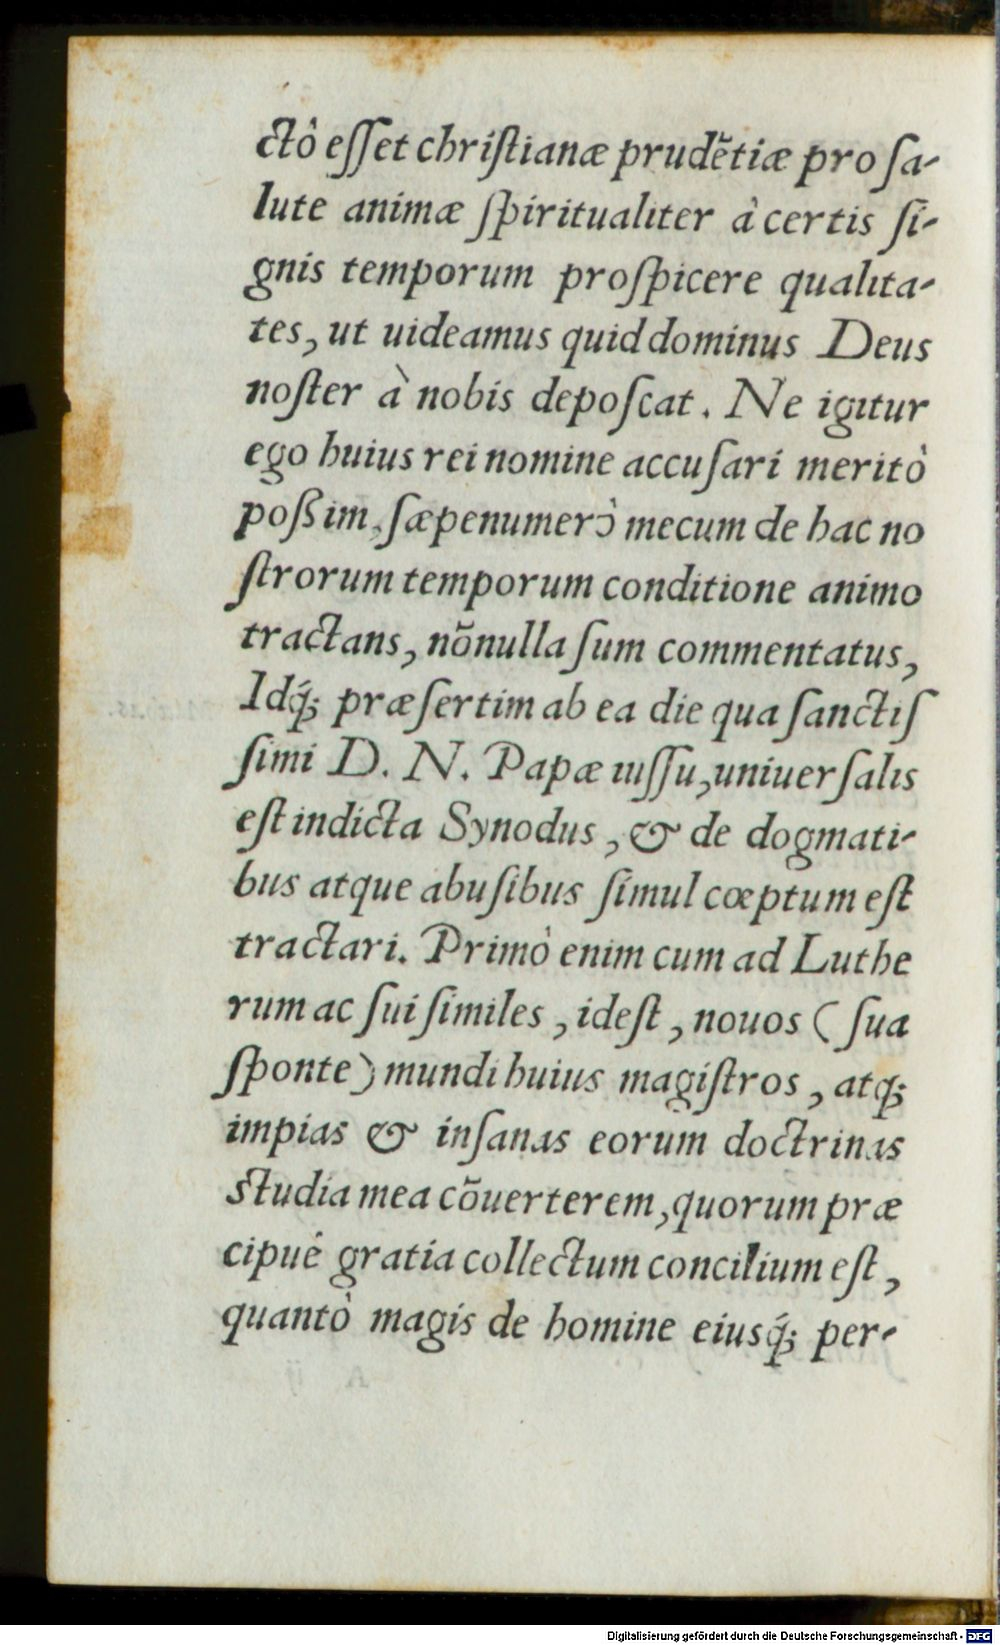 ctò eſſet chriſtianæ prudẽtiæ pro ſa-
lute animæ ſpiritualiter à certis ſi-
gnis temporum proſpicere qualita-
tes, ut uideamus quid dominus Deus
noſter à nobis depoſcat. Ne igitur
ego huius rei nomine accuſari meritò
poßim, ſæpenumerò mecum de hac no
ſtrorum temporum conditione animo
tractans, nõnulla ſum commentatus,
Idq́; præſertim ab ea die qua ſanctiſ
ſimi D. N. Papæ iuſſu, uniuerſalis
eſt indicta Synodus, & de dogmati-
bus atque abuſibus ſimul cœptum eſt
tractari. Primò enim cum ad Luthe
rum ac ſui ſimiles, ideſt, nouos (ſua
ſponte) mundi huius magiſtros, atq;
impias & inſanas eorum doctrinas
studia mea cõuerterem, quorum præ
cipuè gratia collectum concilium eſt,
quantò magis de homine eiusq́; per-
Digitalisierung gefördert durch die Deutsche Forschungsgemeinschaft - DFG